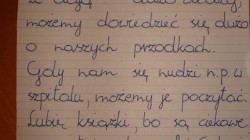 możemy dowiedzieć się dużo
o naszych przodkach.
Gdy nam się nudzi n.p. w
szpitalu, możemy je poczytać
Lubię książki, bo są ciekawe